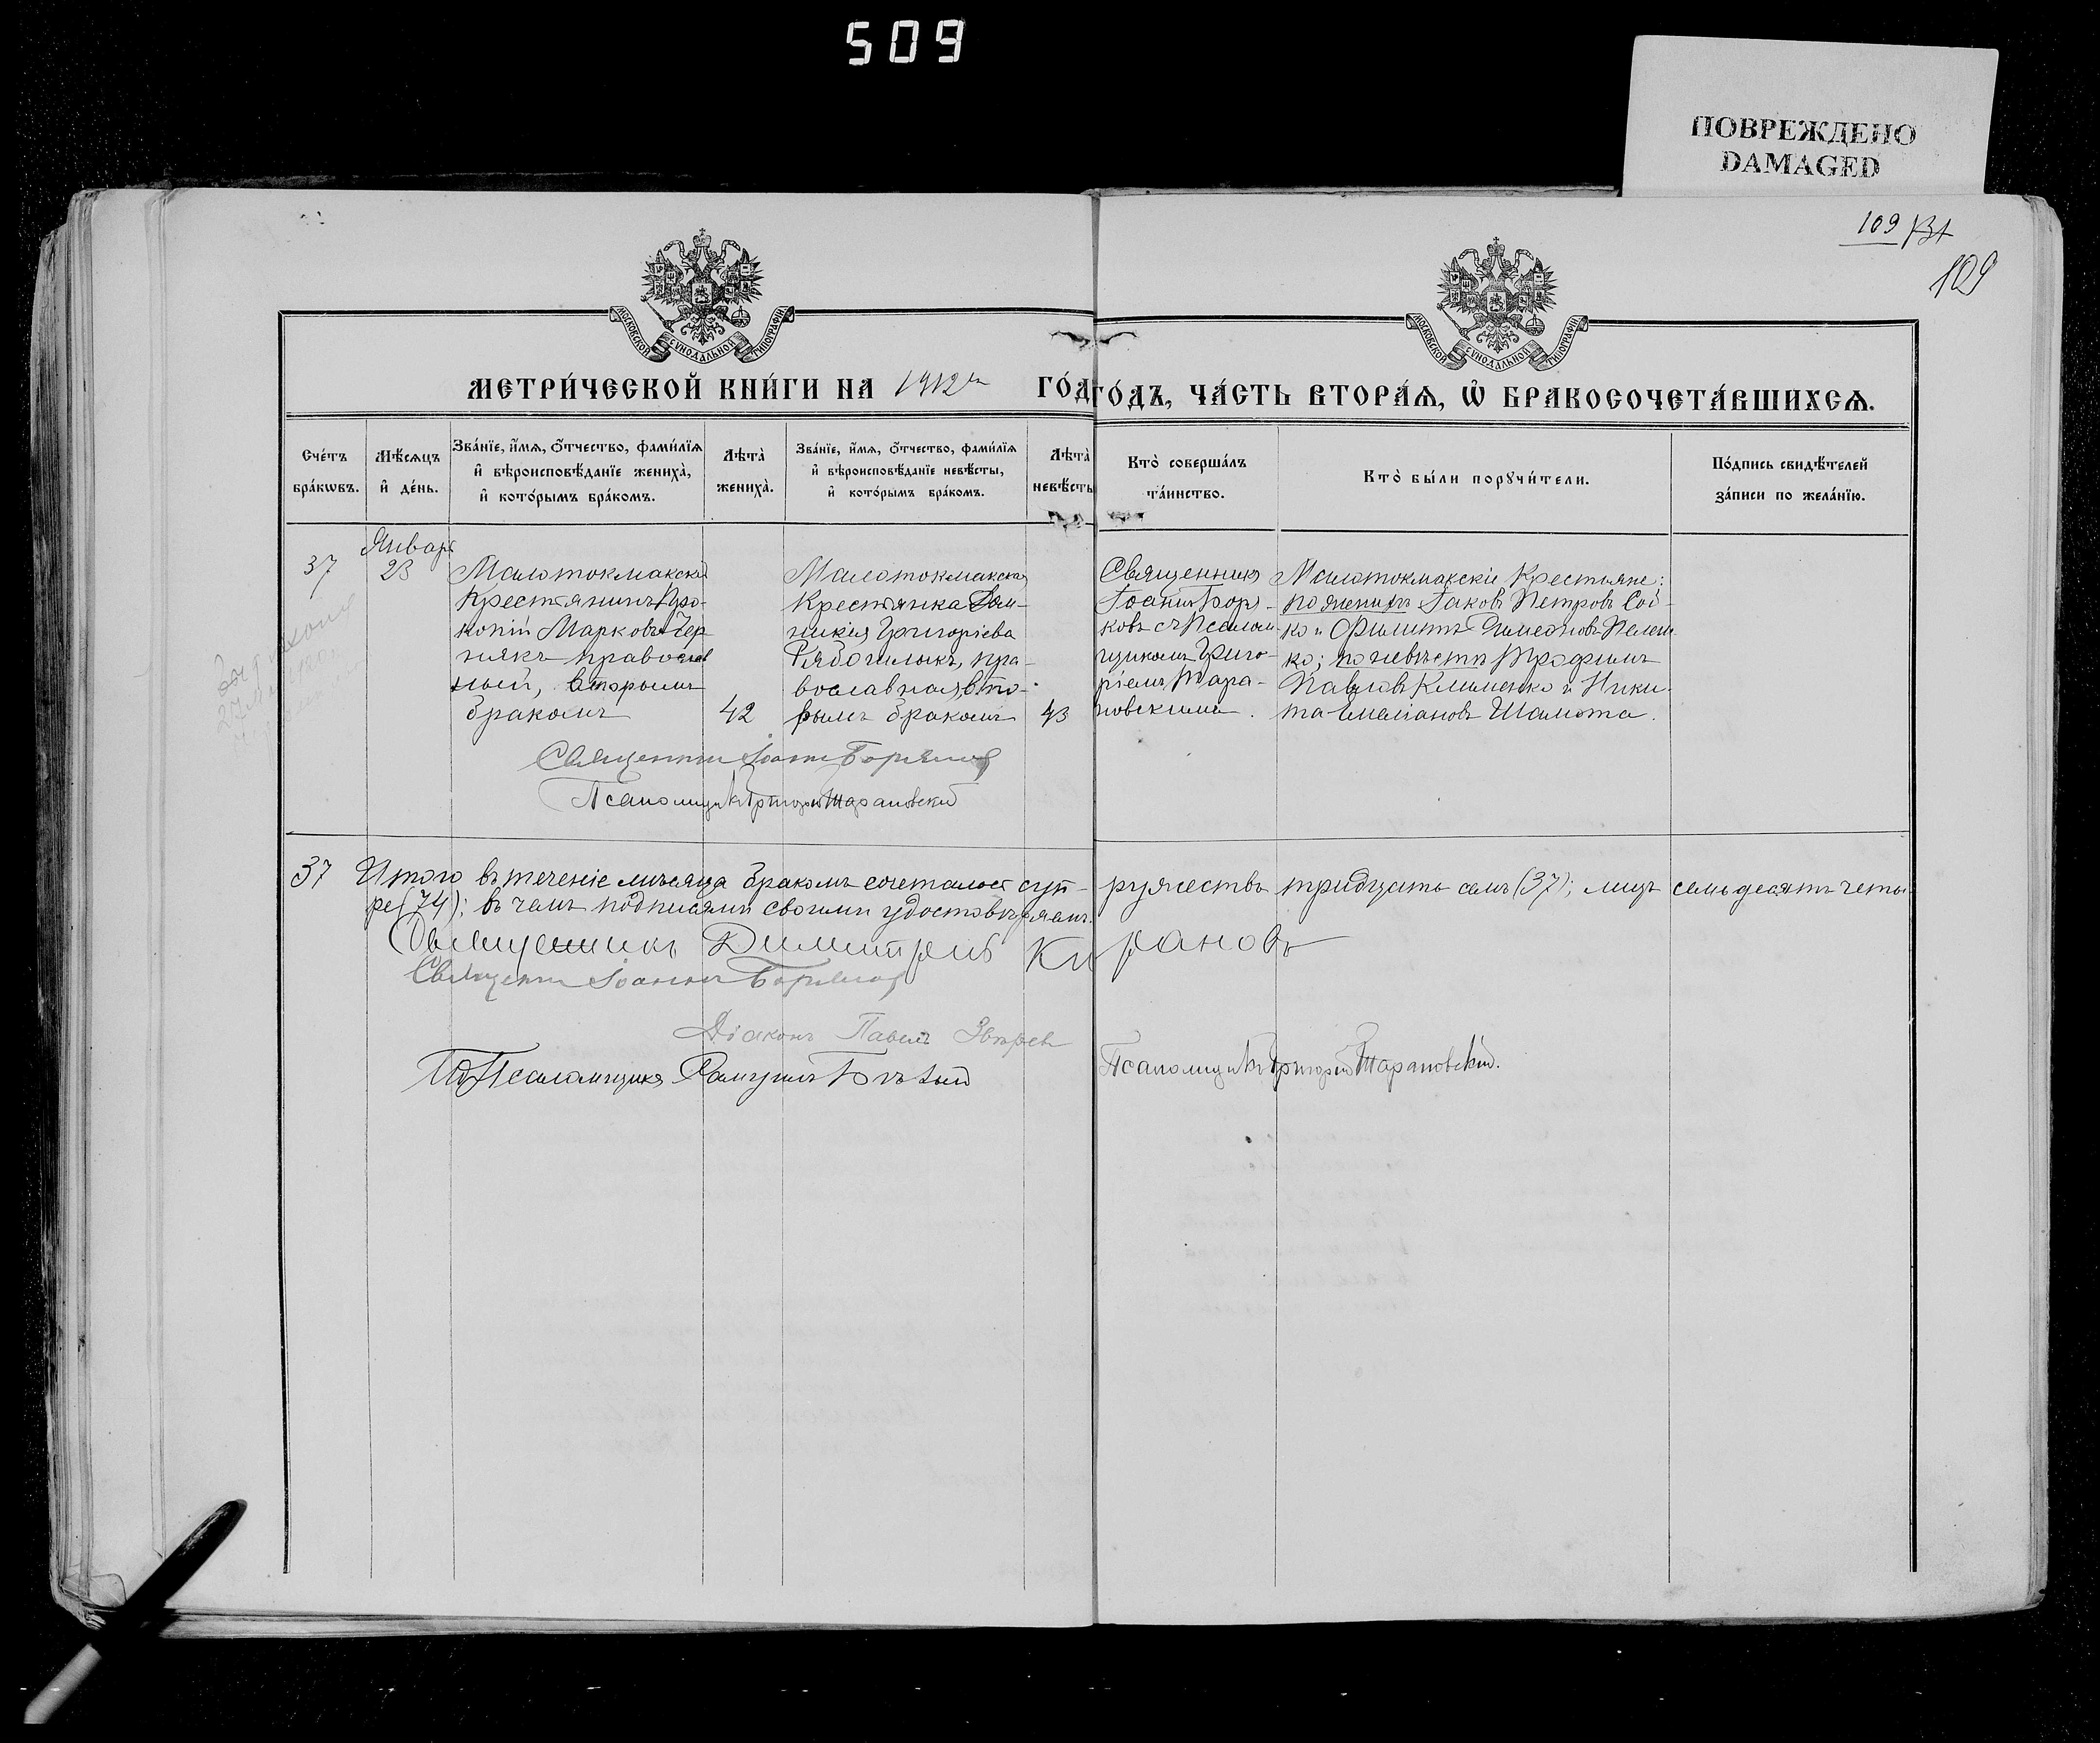 509
ПОВРЕЖДЕНО
DAMAGED
109
109
МОСКОВСКОЙ СѴНОДАЛЬНОЙ ТИПОГРАФІИ
МОСКОВСКОЙ СѴНОДАЛЬНОЙ ТИПОГРАФІИ
МЕТРИ́ЧЕСКОЙ КНИ́ГИ НА 1912 ГО́Д
ГО́ДЪ, ЧА́СТЬ ВТОРА́Ѧ, Ѽ БРАКОСОЧЕТА́ВШИХСѦ.
Сче́тъ
бра́кѡвъ.
Мѣ́сѧцъ
и҆ де́нь.
Зва́нїе, и҆́мѧ, ѻ҆́тчество, фами́лїѧ
и҆ вѣроисповѣ́данїе жениха̀,
и҆ кото́рымъ бра́комъ.
Лѣта̀
жениха̀.
Зва́нїе, и҆́мѧ, ѻ҆́тчество, фами́лїѧ
и҆ вѣроисповѣ́данїе невѣ́сты,
и҆ кото́рымъ бра́комъ.
Лѣта̀
невѣ́сты
Кто̀ соверша́лъ
та́инство.
Кто̀ бы́ли порꙋчи́тели.
По́дпись свидѣ́телей
за́писи по жела́нїю.
37
Январь
23
Малотокмакскій
крестьянинъ Про-
копій Марковъ Чер
някъ православ
ный, вторымъ
бракомъ
42
Малотокмакская
крестьянка Дом-
никія Григоріева
православная, вто-
рымъ бракомъ
43
Священникъ
Іоаннъ Боря-
ковъ съ Псалом-
щикомъ Григо-
ріемъ Тара-
новскимъ.
Малотокмакскіе крестьяне:
по женихѣ Іаковъ Петровъ Сой-
ко и Филиппъ Симеоновъ Пелеш-
ко; по невѣстѣ Трофимъ
Павловъ Клименко и Ники-
та Емеліановъ Шамота.
Священникъ Іоаннъ Боряковъ
Псаломщикъ Григорій Тарановскій
37 Итого въ теченіе мѣсяца бракомъ сочеталось суп-
ружествъ тридцать семь (37); лицъ семьдесятъ четы-
ре (74); въ чемъ подписями своими удостовѣряемъ.
Священникъ Димитрій Кирановъ
Священникъ Іоаннъ Боряковъ
Діаконъ Павелъ Звѣревъ
Псаломщика
Псаломщикъ Григорій Тарановскій.